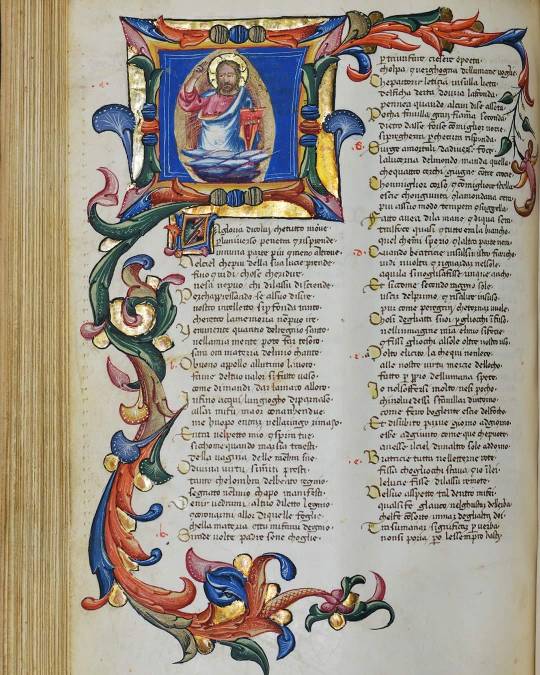 Agloria dicolui chetutto moue
pluniuerso penetra et risplende
inuna parte piu et meno altroue
Nelciel chepiu della sua lucie prende
fu io et uidi chose cheridire
nesa nepuo chi dilassu disciende
Perchappressando se alsuo disire
nostro intelletto si profonda tanto
chedietro lamemoria nonpuo ire
Veramente quanto delregno santo
nellamia mente pote far tesoro
sara ora materia delmio chanto
O buono appollo allultimo lauoro
fammi deltuo ualor si fatto uaso
come dimandi dar lamato alloro
Infino aqui lungiogho diparnaso
assai mifu ma or conambendue
me huopo entrar nellaringo rimaso
Entra nelpetto mio et spira tue
sicchome quando marsia traesti
della uagina delle membra sue
O diuina uirtu semmi ti presti
tanto chelombra delbeato regnio
segnata nelmio chapo manifesti
Venir uedrami altuo diletto legnio
et coronarmi allor diquelle foglie
chella materia et tu mifarai degnio
b.
Si rade uolte padre sene choglie
per triunfare cesere opoeta
cholpa et uerghogna dellumane uoglie
Che parturir letitia insulla lieta
delficha deita douria lafronda
peneia quando alcun dise asseta
Pocha fauilla gran fiamma seconda
dietro dame forse comiglior uoci
si preghera perche cirra risponda
Surge amortali dadiuerse foce
lalucerna delmondo ma da quella
chequattro cierchi giugnie contre croce
Con miglior corso et comigliore stella
escie congiunta et lamondana ciera
piu assuo modo tempera et suggella
Fatto auea dila mane et diqua sera
tal foce quasi et tutto era la biancho
quel chemisperio et laltra parte nera
Quando beatricie insulsinistro fiancho
uidi riuolta et riguardar nelsole
aquila sinoglisaffisse unque ancho
Et sicome secondo raggio suole
uscir delprimo et risalire insuso
pur come peregrin chetornar uuole
Cosi dellatto suo per gliocchi infuso
nellimmagine mia elmio sifecie
et fissi gliocchi alsole oltre nostro uso
Molto elicito la chequi nonlecie
alle nostre uirtu merce delloco
fatto per proprio dellumana spece
Io nolsoffersi molto nesi pocho
chio nolue dessi sfauillar dintorno
come ferro bogliente escie delfocho
Et disubito parue giorno agiorno
essere adgiunto come que chepuote
auesse ilciel dunaltro sole adorno
e.
Beatricie tutta nelletterne rote
fissa chogliocchi staua et io ilei
lelucie fisse dilassu remote
Nelsuo aspetto tal dentro mifei
qualsife glauco nelghustar dellerba
chelfe consorto inmar deglialtri dei
Trasumanar significar per uerba
nonsi poria pero lessempro basti